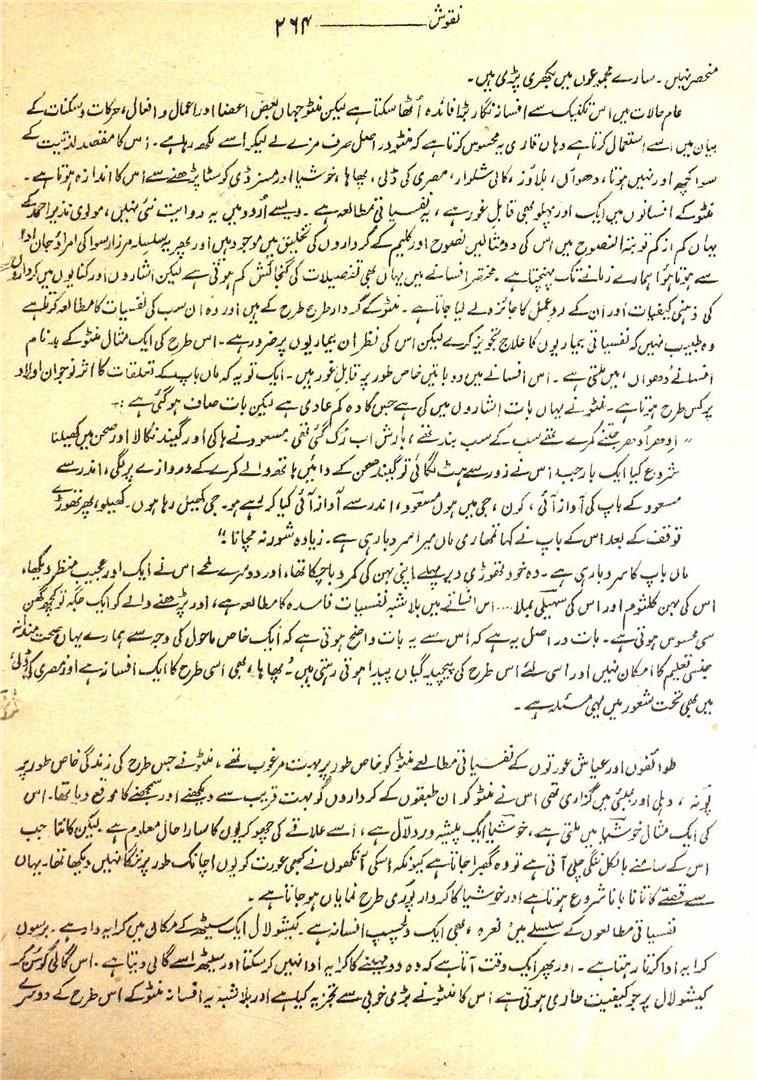 نقوش ——— ۲۶۴
منحصر نہیں۔ سارے مجموعوں میں بکھری پڑی ہیں۔
عام حالات میں اس تکنیک سے افسانہ نگار بڑا فائدہ اُٹھا سکتا ہے لیکن منٹو جہاں بعض اعضا اور اعمال و افعال، حرکات و سکنات کے
بیان میں اسے استعمال کرتا ہے وہاں قاری یہ محسوس کرتا ہے کہ منٹو دراصل صرف مزے لے لیکر اسے لکھ رہا ہے۔ اس کا مقصد لذتیت کے
سوا کچھ اور نہیں ہوتا، دھواں، بلاؤز، کالی شلوار، مصری کی ڈلی، پھاہا، خوشیا اور مسز ڈی کوسٹا پڑھنے سے اس کا اندازہ ہوتا ہے۔
منٹو کے افسانوں میں ایک اور پہلو بھی قابل غور ہے، یہ نفسیاتی مطالعہ ہے۔ ویسے اُردو میں یہ روایت نئی نہیں، مولوی نذیر احمد کے
یہاں کم از کم توبتہ النصوح میں اس کی دو مثالیں نصوح اور کلیم کے کرداروں کی تخلیق میں موجود ہیں اور پھر یہ سلسلہ مرزا رسوا کی امراؤ جان ادا
سے ہوتا ہوا ہمارے زمانے تک پہنچتا ہے۔ مختصر افسانے میں یہاں بھی تفصیلات کی گنجائش کم ہوتی ہے لیکن اشاروں اور کنایوں میں کرداروں
کی ذہنی کیفیات اور ان کے ردِ عمل کا جائزہ لے لیا جاتا ہے۔ منٹو کے کردار طرح طرح کے ہیں اور وہ ان سب کی نفسیات کا مطالعہ کرتا ہے
وہ طبیب نہیں کہ نفسیاتی بیماریوں کا علاج تجویز کرے لیکن اس کی نظر ان بیماریوں پر ضرور ہے۔ اس طرح کی ایک مثال منٹو کے بدنام
افسانے دھواں، میں ملتی ہے۔ اس افسانے میں دو باتیں خاص طور پر قابل غور ہیں۔ ایک تو یہ کہ ماں باپ کے تعلقات کا اثر نوجوان اولاد
پر کس طرح ہوتا ہے۔ منٹو نے یہاں بات اشاروں میں کی ہے جس کا وہ کم عادی ہے لیکن بات صاف ہو گئی ہے :۔
” اِدھر اُدھر جتنے کمرے تھے سب کے سب بند تھے، بارش اب رُک گئی تھی مسعود نے ہاکی اور گیند نکالا اور صحن میں کھیلنا
شروع کیا ایک بار جب اس نے زور سے ہٹ لگائی تو گیند صحن کے دائیں ہاتھ والے کمرے کے دروازے پر لگی، اندر سے
مسعود کے باپ کی آواز آئی، کون، جی میں ہوں مسعود، اندر سے آواز آئی کیا کر رہے ہو۔ جی کھیل رہا ہوں۔ کھیلو، پھر تھوڑے
توقف کے بعد اس کے باپ نے کہا تمھاری ماں میرا سر دبا رہی ہے۔ زیادہ شور نہ مچانا ؛“
ماں باپ کا سر دبا رہی ہے۔ وہ خود تھوڑی دیر پہلے اپنی بہن کی کمر دبا چکا تھا، اور دوسرے لمحے اس نے ایک اور عجیب منظر دیکھا،
اس کی بہن کلثوم اور اس کی سہیلی بملا .... اس افسانے میں بلاشبہ نفسیات فاسدہ کا مطالعہ ہے، اور پڑھنے والے کو ایک جگہ تو کچھ گھن
سی محسوس ہوتی ہے۔ بات دراصل یہ ہے کہ اس سے یہ بات واضح ہوتی ہے کہ ایک خاص ماحول کی وجہ سے ہمارے یہاں صحت مندانہ
جنسی تعلیم کا امکان نہیں اور اسی لئے اس طرح کی پیچیدگیاں پیدا ہوتی رہتی ہیں۔ پھاہا، بھی اسی طرح کا ایک افسانہ ہے اور مصری کی ڈلی
میں بھی تحت شعور میں یہی مسئلہ ہے۔
طوائفوں اور عیاش عورتوں کے نفسیاتی مطالعے منٹو کو خاص طور پر بہت مرغوب تھے، منٹو نے جس طرح کی زندگی خاص طور پر
پونہ، دہلی اور بمبئی میں گزاری تھی اس نے منٹو کو ان طبقوں کے کرداروں کو بہت قریب سے دیکھنے اور سمجھنے کا موقع دیا تھا۔ اس
کی ایک مثال خوشیا میں ملتی ہے، خوشیا ایک پیشہ ور دلال ہے، اسے علاقے کی چھوکریوں کا سارا حال معلوم ہے لیکن کانتا جب
اس کے سامنے بالکل ننگی چلی آتی ہے تو وہ گھبرا جاتا ہے کیونکہ اسکی آنکھوں نے کبھی عورت کو یوں اچانک طور پر ننگا نہیں دیکھا تھا۔ یہاں
سے قصّے کا تانا بانا شروع ہوتا ہے اور خوشیا کا کردار پوری طرح نمایاں ہو جاتا ہے۔
نفسیاتی مطالعوں کے سلسلے میں نعرہ، بھی ایک دلچسپ افسانہ ہے۔ کیشو لال ایک سیٹھ کے مکان میں کرایہ دار ہے۔ برسوں
کرایہ ادا کرتا رہتا ہے۔ اور پھر ایک وقت آتا ہے کہ وہ دو مہینے کا کرایہ ادا نہیں کر سکتا اور سیٹھ اسے گالی دیتا ہے۔ اس گالی کو سُن کر
کیشو لال پر جو کیفیت طاری ہوتی ہے اس کا منٹو نے بڑی خوبی سے تجزیہ کیا ہے اور بلاشبہ یہ افسانہ منٹو کے اس طرح کے دوسرے